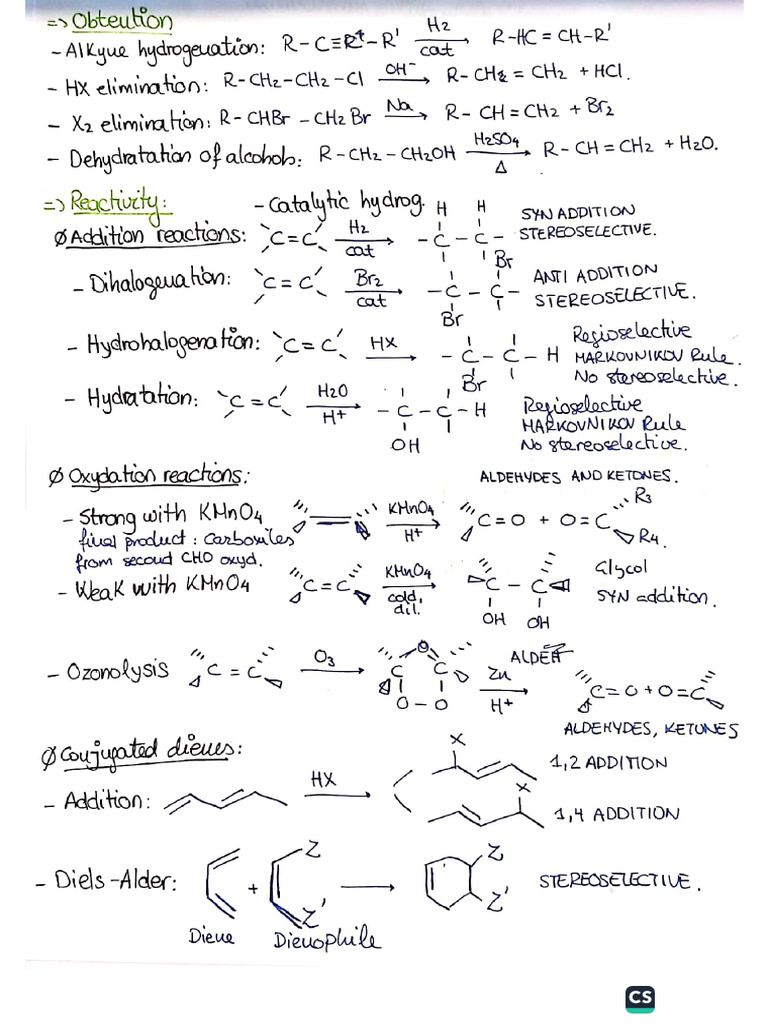 => Obtention
- Alkyne hydrogenation: R-C≡C-R' H2 cat R-HC=CH-R'
- HX elimination: R-CH2-CH2-Cl OH⁻ R-CH=CH2 + HCl.
- X2 elimination: R-CHBr-CH2Br Na R-CH=CH2 + Br2
- Dehydratation of alcohols: R-CH2-CH2OH H2SO4 Δ R-CH=CH2 + H2O.
=> Reactivity:
- Catalytic hydrog.
Ø Addition reactions: C=C H2 cat H H -C-C- SYN ADDITION STEREOSELECTIVE.
- Dihalogenation: C=C Br2 cat Br -C-C- Br ANTI ADDITION STEREOSELECTIVE.
- Hydrohalogenation: C=C HX -C-C-H Br Regioselective MARKOVNIKOV Rule. No stereoselective.
- Hydratation: C=C H2O H+ -C-C-H OH Regioselective MARKOVNIKOV Rule No stereoselective.
Ø Oxydation reactions: ALDEHYDES AND KETONES.
- Strong with KMnO4 KMnO4 H+ C=O + O=C R3 R4
final product: carboxiles
from second CHO oxyd.
- Weak with KMnO4 C=C KMnO4 cold, dil. C-C OH OH Glycol SYN addition.
- Ozonolysis C=C O3 O C C O-O Zn H+ C=O+O=C
ALDEHYDES, KETONES
Ø Conjugated dienes:
- Addition: HX X 1,2 ADDITION
X 1,4 ADDITION
- Diels-Alder: + Z Z' Z Z' STEREOSELECTIVE.
Diene Dienophile
CS